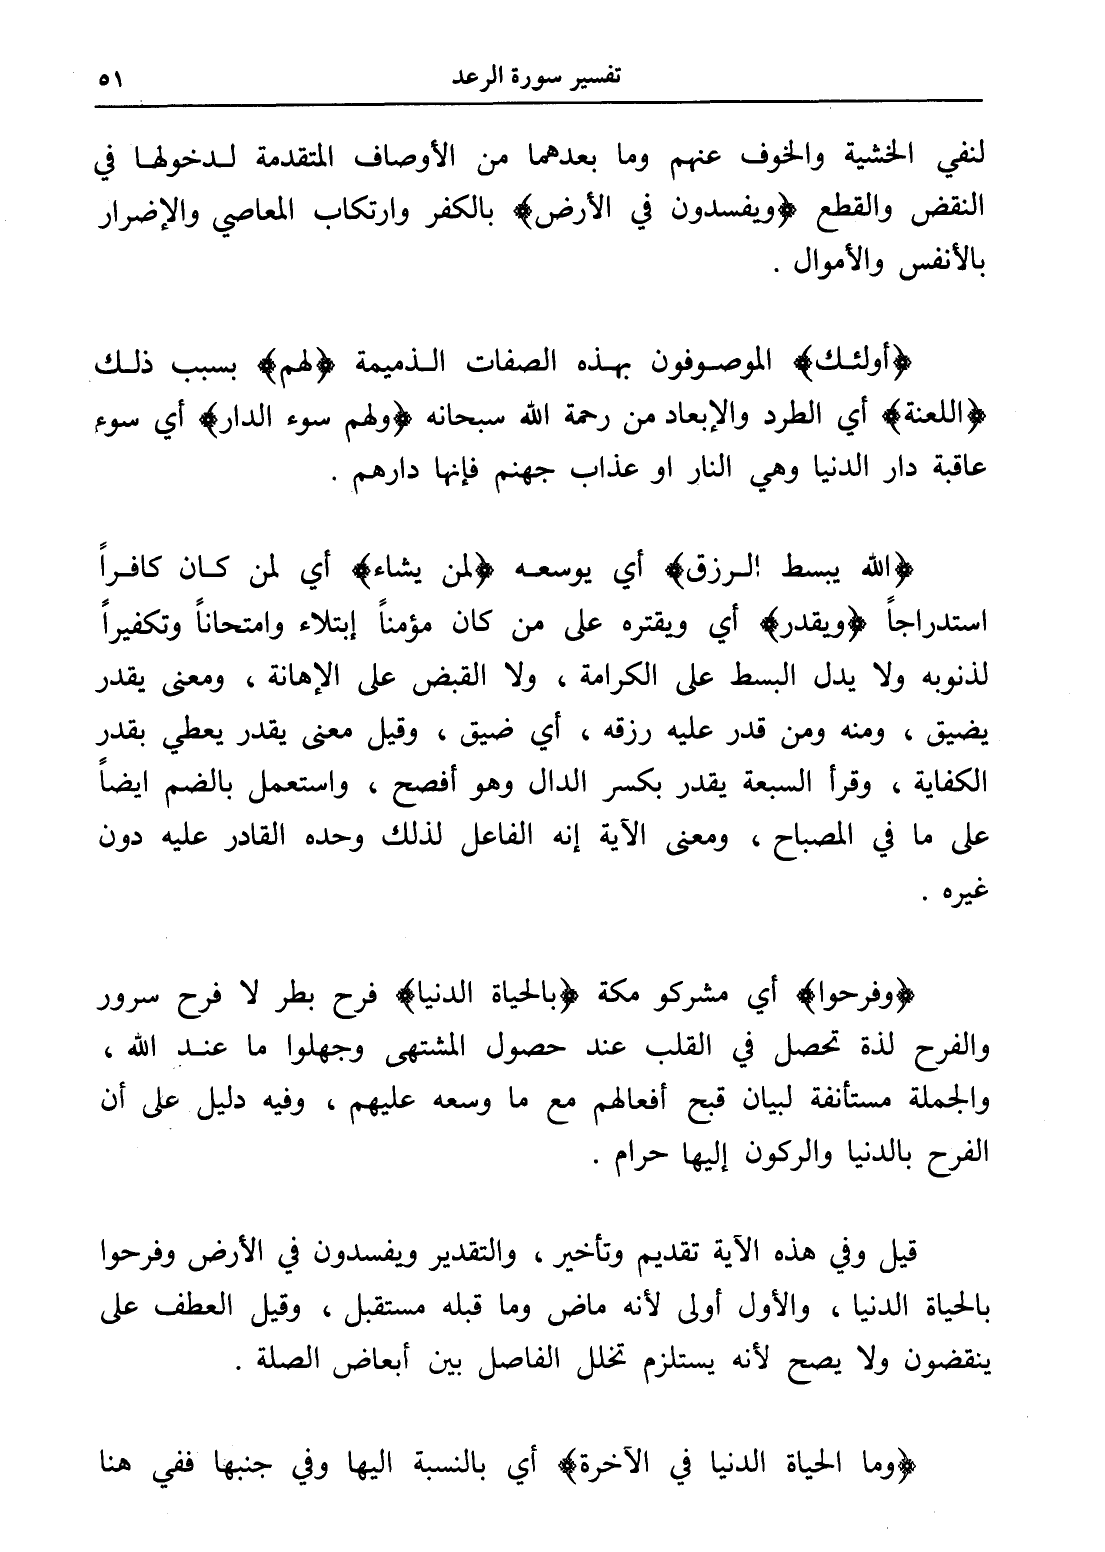 تفسير سورة الرعد ٥١
لنفي الخشية والخوف عنهم وما بعدهما من الأوصاف المتقدمة لـدخولهـا في
النقض والقطع ﴿ويفسدون في الأرض﴾ بالكفر وارتكاب المعاصي والإضرار
بالأنفس والأموال .
﴿أولئـك﴾ الموصـوفون بهـذه الصفات الـذميمة ﴿لهم﴾ بسبب ذلـك
﴿اللعنة﴾ أي الطرد والإبعاد من رحمة الله سبحانه ﴿ولهم سوء الدار﴾ أي سوء
عاقبة دار الدنيا وهي النار او عذاب جهنم فإنها دارهم .
﴿الله يبسط الـرزق﴾ أي يوسعـه ﴿لمن يشاء﴾ أي لمن كـان كافـراً
استدراجاً ﴿ويقدر﴾ أي ويقتره على من كان مؤمناً إبتلاء وامتحاناً وتكفيراً
لذنوبه ولا يدل البسط على الكرامة ، ولا القبض على الإهانة ، ومعنى يقدر
يضيق ، ومنه ومن قدر عليه رزقه ، أي ضيق ، وقيل معنى يقدر يعطي بقدر
الكفاية ، وقرأ السبعة يقدر بكسر الدال وهو أفصح ، واستعمل بالضم ايضاً
على ما في المصباح ، ومعنى الآية إنه الفاعل لذلك وحده القادر عليه دون
غيره .
﴿وفرحوا﴾ أي مشركو مكة ﴿بالحياة الدنيا﴾ فرح بطر لا فرح سرور
والفرح لذة تحصل في القلب عند حصول المشتهى وجهلوا ما عنـد الله ،
والجملة مستأنفة لبيان قبح أفعالهم مع ما وسعه عليهم ، وفيه دليل على أن
الفرح بالدنيا والركون إليها حرام .
قيل وفي هذه الآية تقديم وتأخير ، والتقدير ويفسدون في الأرض وفرحوا
بالحياة الدنيا ، والأول أولى لأنه ماض وما قبله مستقبل ، وقيل العطف على
ينقضون ولا يصح لأنه يستلزم تخلل الفاصل بين أبعاض الصلة .
﴿وما الحياة الدنيا في الآخرة﴾ أي بالنسبة اليها وفي جنبها ففي هنا